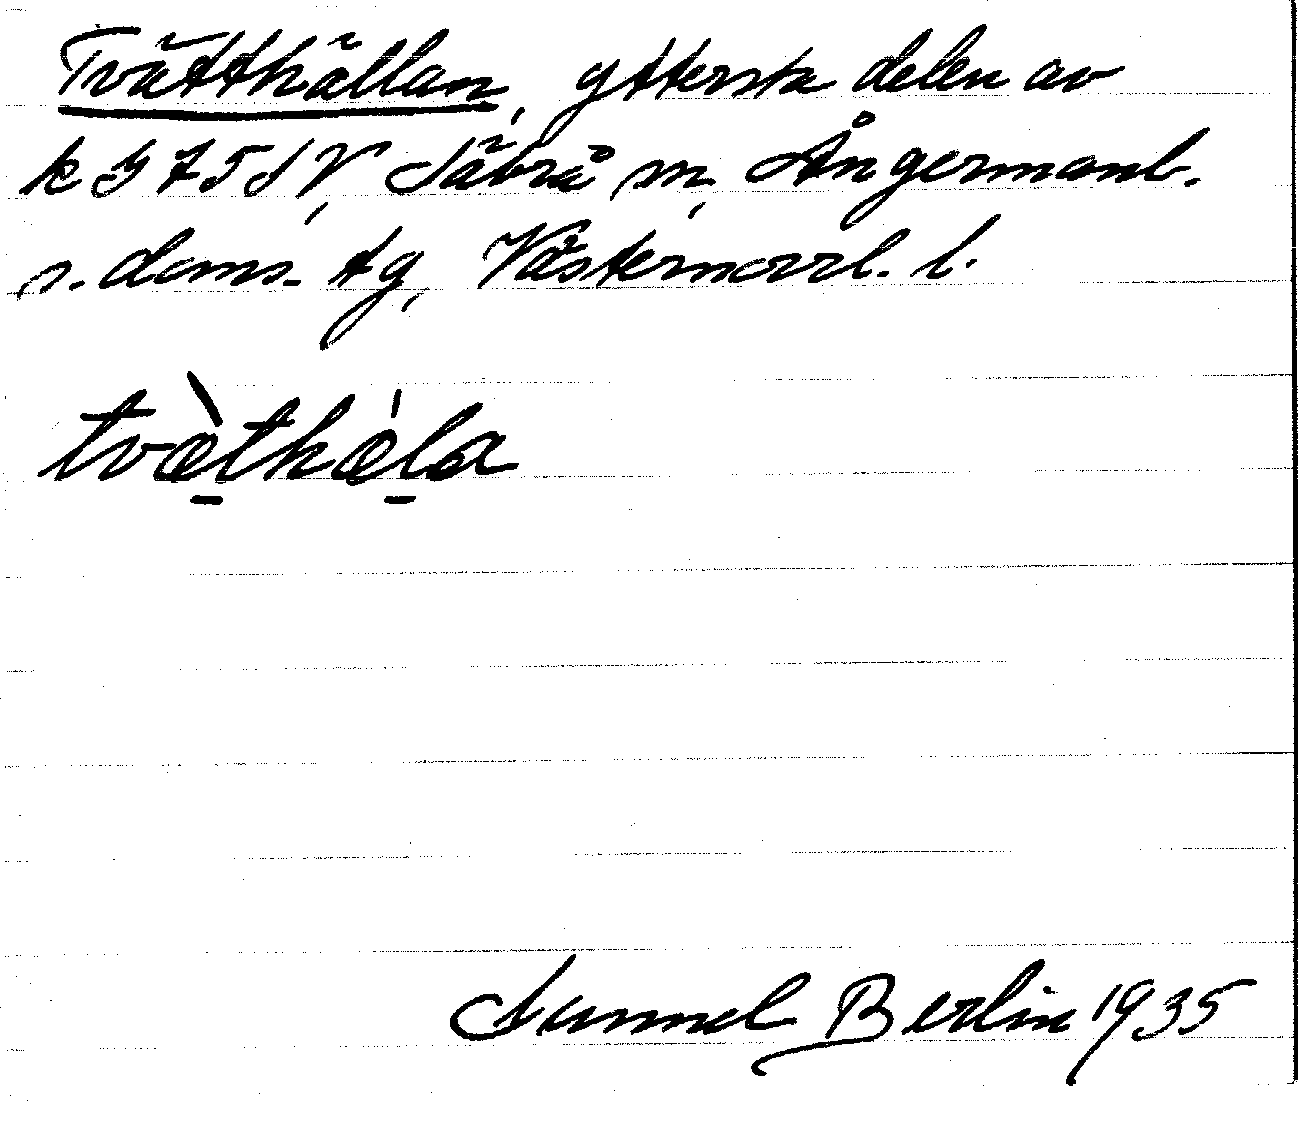 Tvätthällan, yttersta delen av
k 375 SV, Säbrå sn, Ångermanl.
s. doms. tg, Västernorrl. l.
tvæ̱̀thǽ̱la
Gunnel Berlin 1935